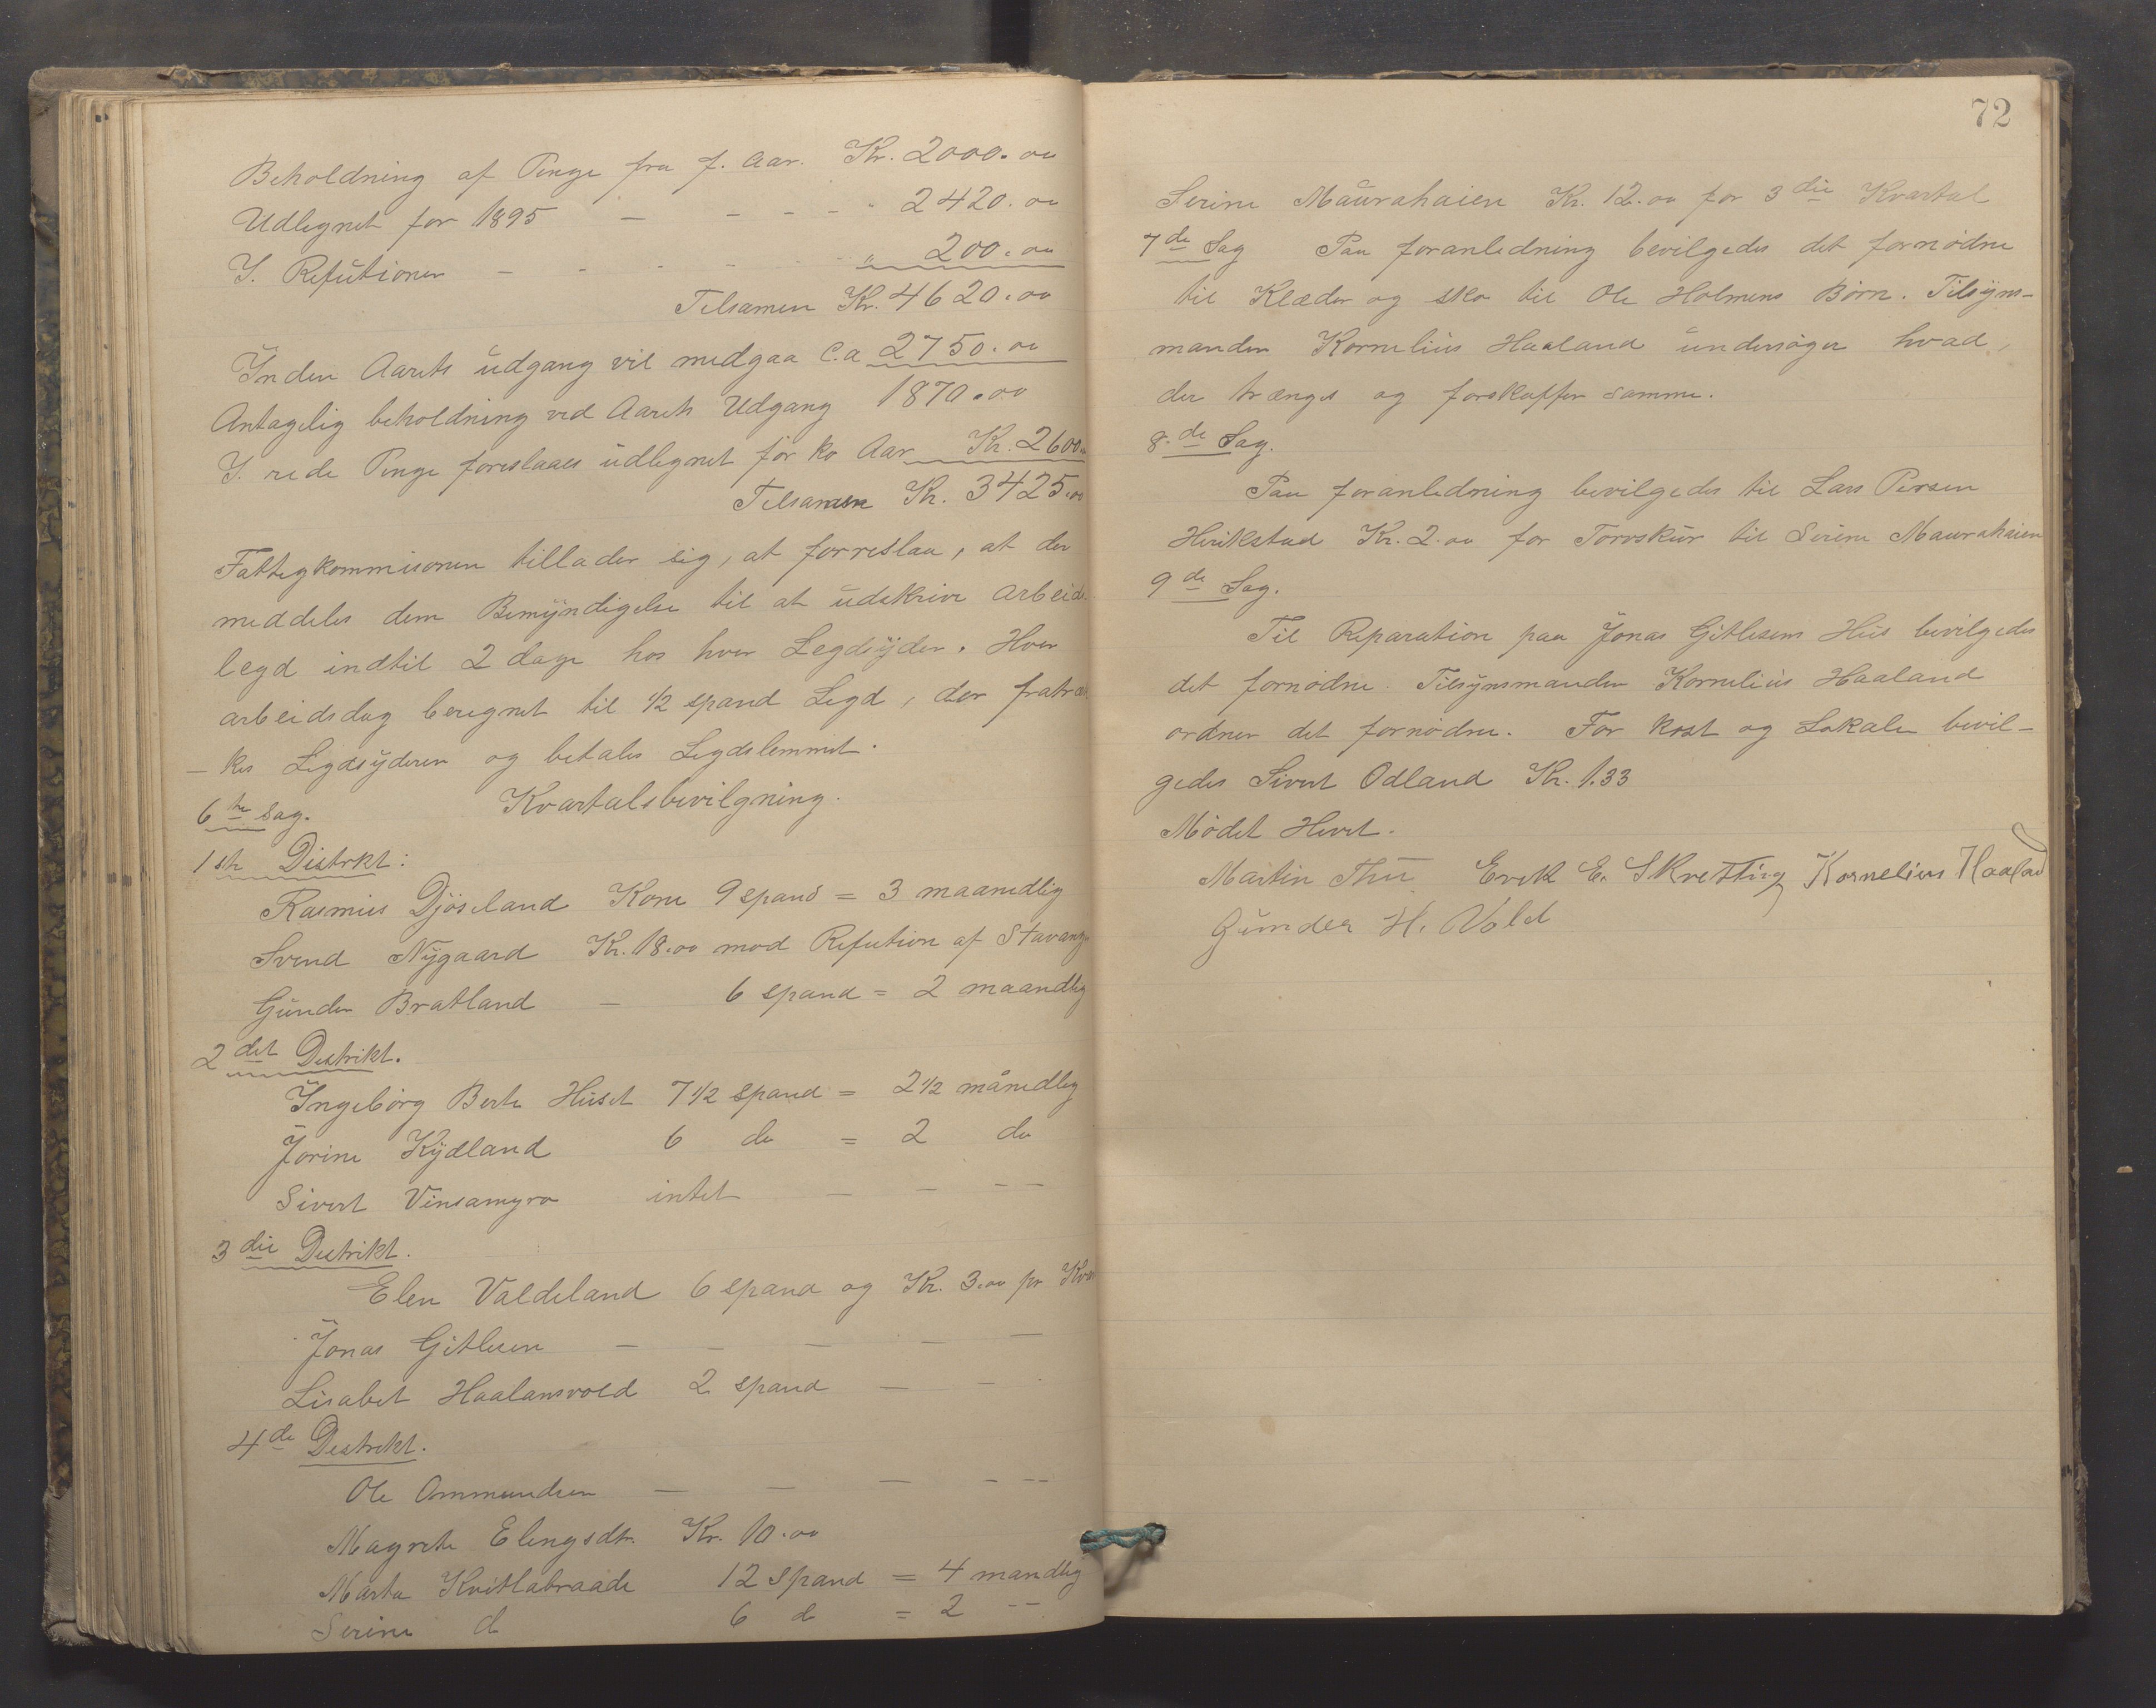 Beholdning af Penge fra f. Aar. Kr. 2000.00
Udlignet for 1895 — - - - " 2420.00
I. Refutioner — - - - - " 200.00
Tilsamen Kr. 4620.00
Inden Aarets udgang vil medgaa C.a 2750.00
Antagelig beholdning ved Aarets Udgang 1870.00
I. rede Penge foreslaaes udlignet for ko Aar Kr. 2600.
Tilsamen Kr. 3425.00
Fattigkommisonen tillader sig, at forreslaa, at der
meddeles dem Bemyndigelse til at udskrive arbeids
legd indtil 2 dage hos hver Legdsyder. Hver
arbeidsdag beregnet til 1/2 spand Legd, der fratræk
- kes Legdsyderen og betales Legdslemmet.
6te Sag. Kvartalsbevilgning.
1ste Distrkt:
Rasmus Djøseland Korn 9 spand = 3 maanedlig
Svend Nygaard Kr. 18.00 mod Refution af Stavang
Gunder Bratland — 6 spand = 2 maandlig
2det Distrikt.
Ingeborg Berte Huset 7 1/2 spand = 2 1/2 månedlig
Jorine Kydland 6 do = 2 do
Sivert Vinsamyro intet — — — —
3die Distrikt.
Elen Valdeland 6 spand og Kr. 3.00 pr Kvar
Jonas Gitlesen — — — — —
Lisabet Haalansvold 2 spand — —
4de Distrikt.
Ole Ommundsen — — — - --
Magrete Elengsdtr. Kr. 10.00
Marta Kvitlabraade 12 spand = 4 mandlig
Serine d 6 d = 2 --
72
Serine Maurahaien Kr. 12.00 for 3die Kvartal
7de Sag Paa foranledning bevilgedes det fornødne
til Klæder og sko til Ole Holmens Børn. Tilsyns-
manden Kornelius Haaland undersøger hvad,
der trænges og forskaffer samme.
8.de Sag.
Paa foranledning bevilgedes til Lars Persen
Herikstad Kr. 2.00 for Torvskur til Serine Maurahaien
9de Sag.
Til Reparation paa Jonas Gitlesens Hus bevilgedes
det fornødne. Tilsynsmanden Kornelius Haaland
ordner det fornødne. For kost og Lokale bevil-
gedes Sivert Odland Kr. 1.33
Mødet Hævet.
Martin Thu Erek E. Skretting Kornelius Haaland
Gunder H. Vold